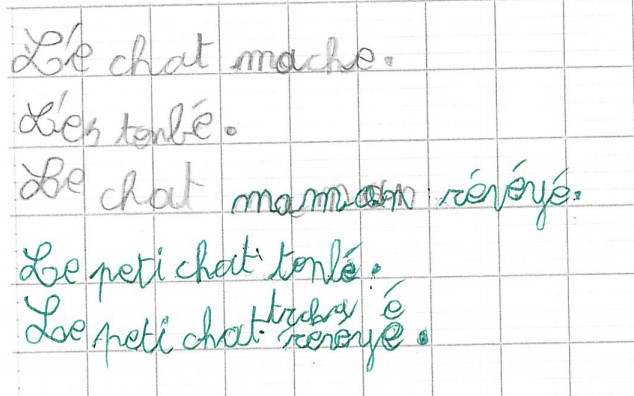 Le chat mache.
L'en tonbé.
Le chat maman révéyé.
Le peti chat tonlé.
é
Le peti chat revéyé.